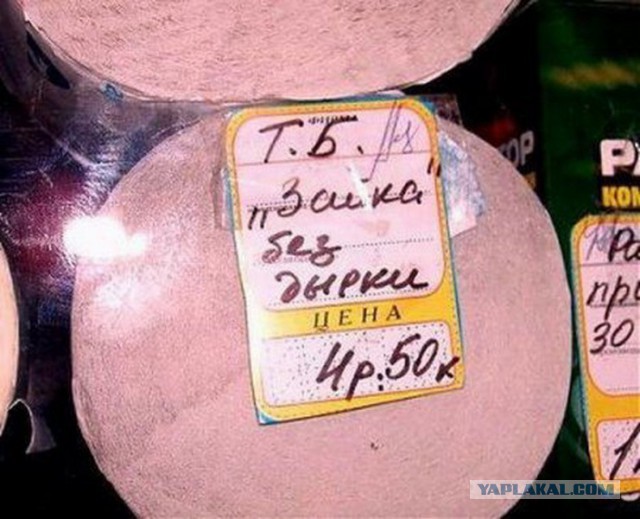 Т.Б.
„Зайка"
без
дырки
ЦЕНА
4р.50к
ТОР
РА
КОМ
Ра
при
30
YAPLAKAL.COM